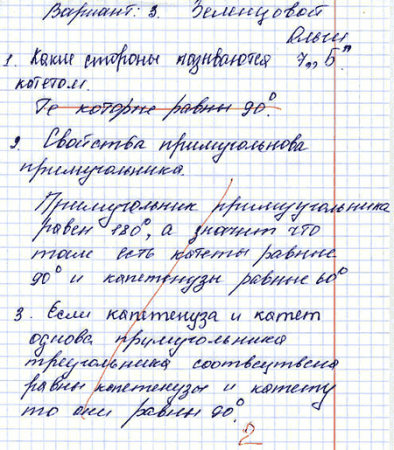 Вариант: 3. Зеленцовой
Ольги
1. Какие стороны называются 7 "Б"
катетом.
Те которые равны 90°.
2. Свойства примугольнова
примугольника.
Примугольник примуугольника
равен 180°, а значит что
там есть катеты равные
90° и капетенузы равные 60°
3. Если капетенуза и катет
однова примугольника
треугольника соотвецтвена
равны капетенузы и катету
то они равны 90°.
2